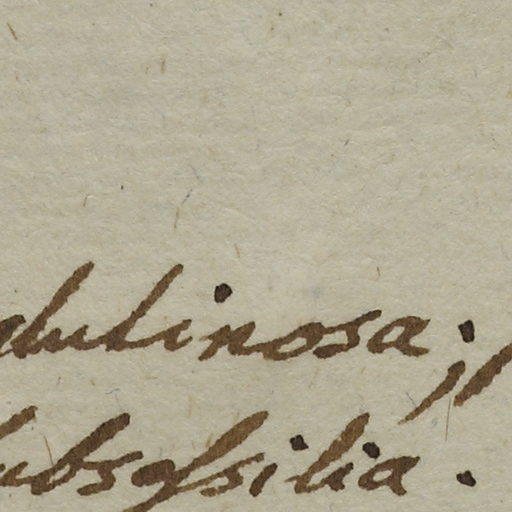 glutinosa;
subseſsilia.